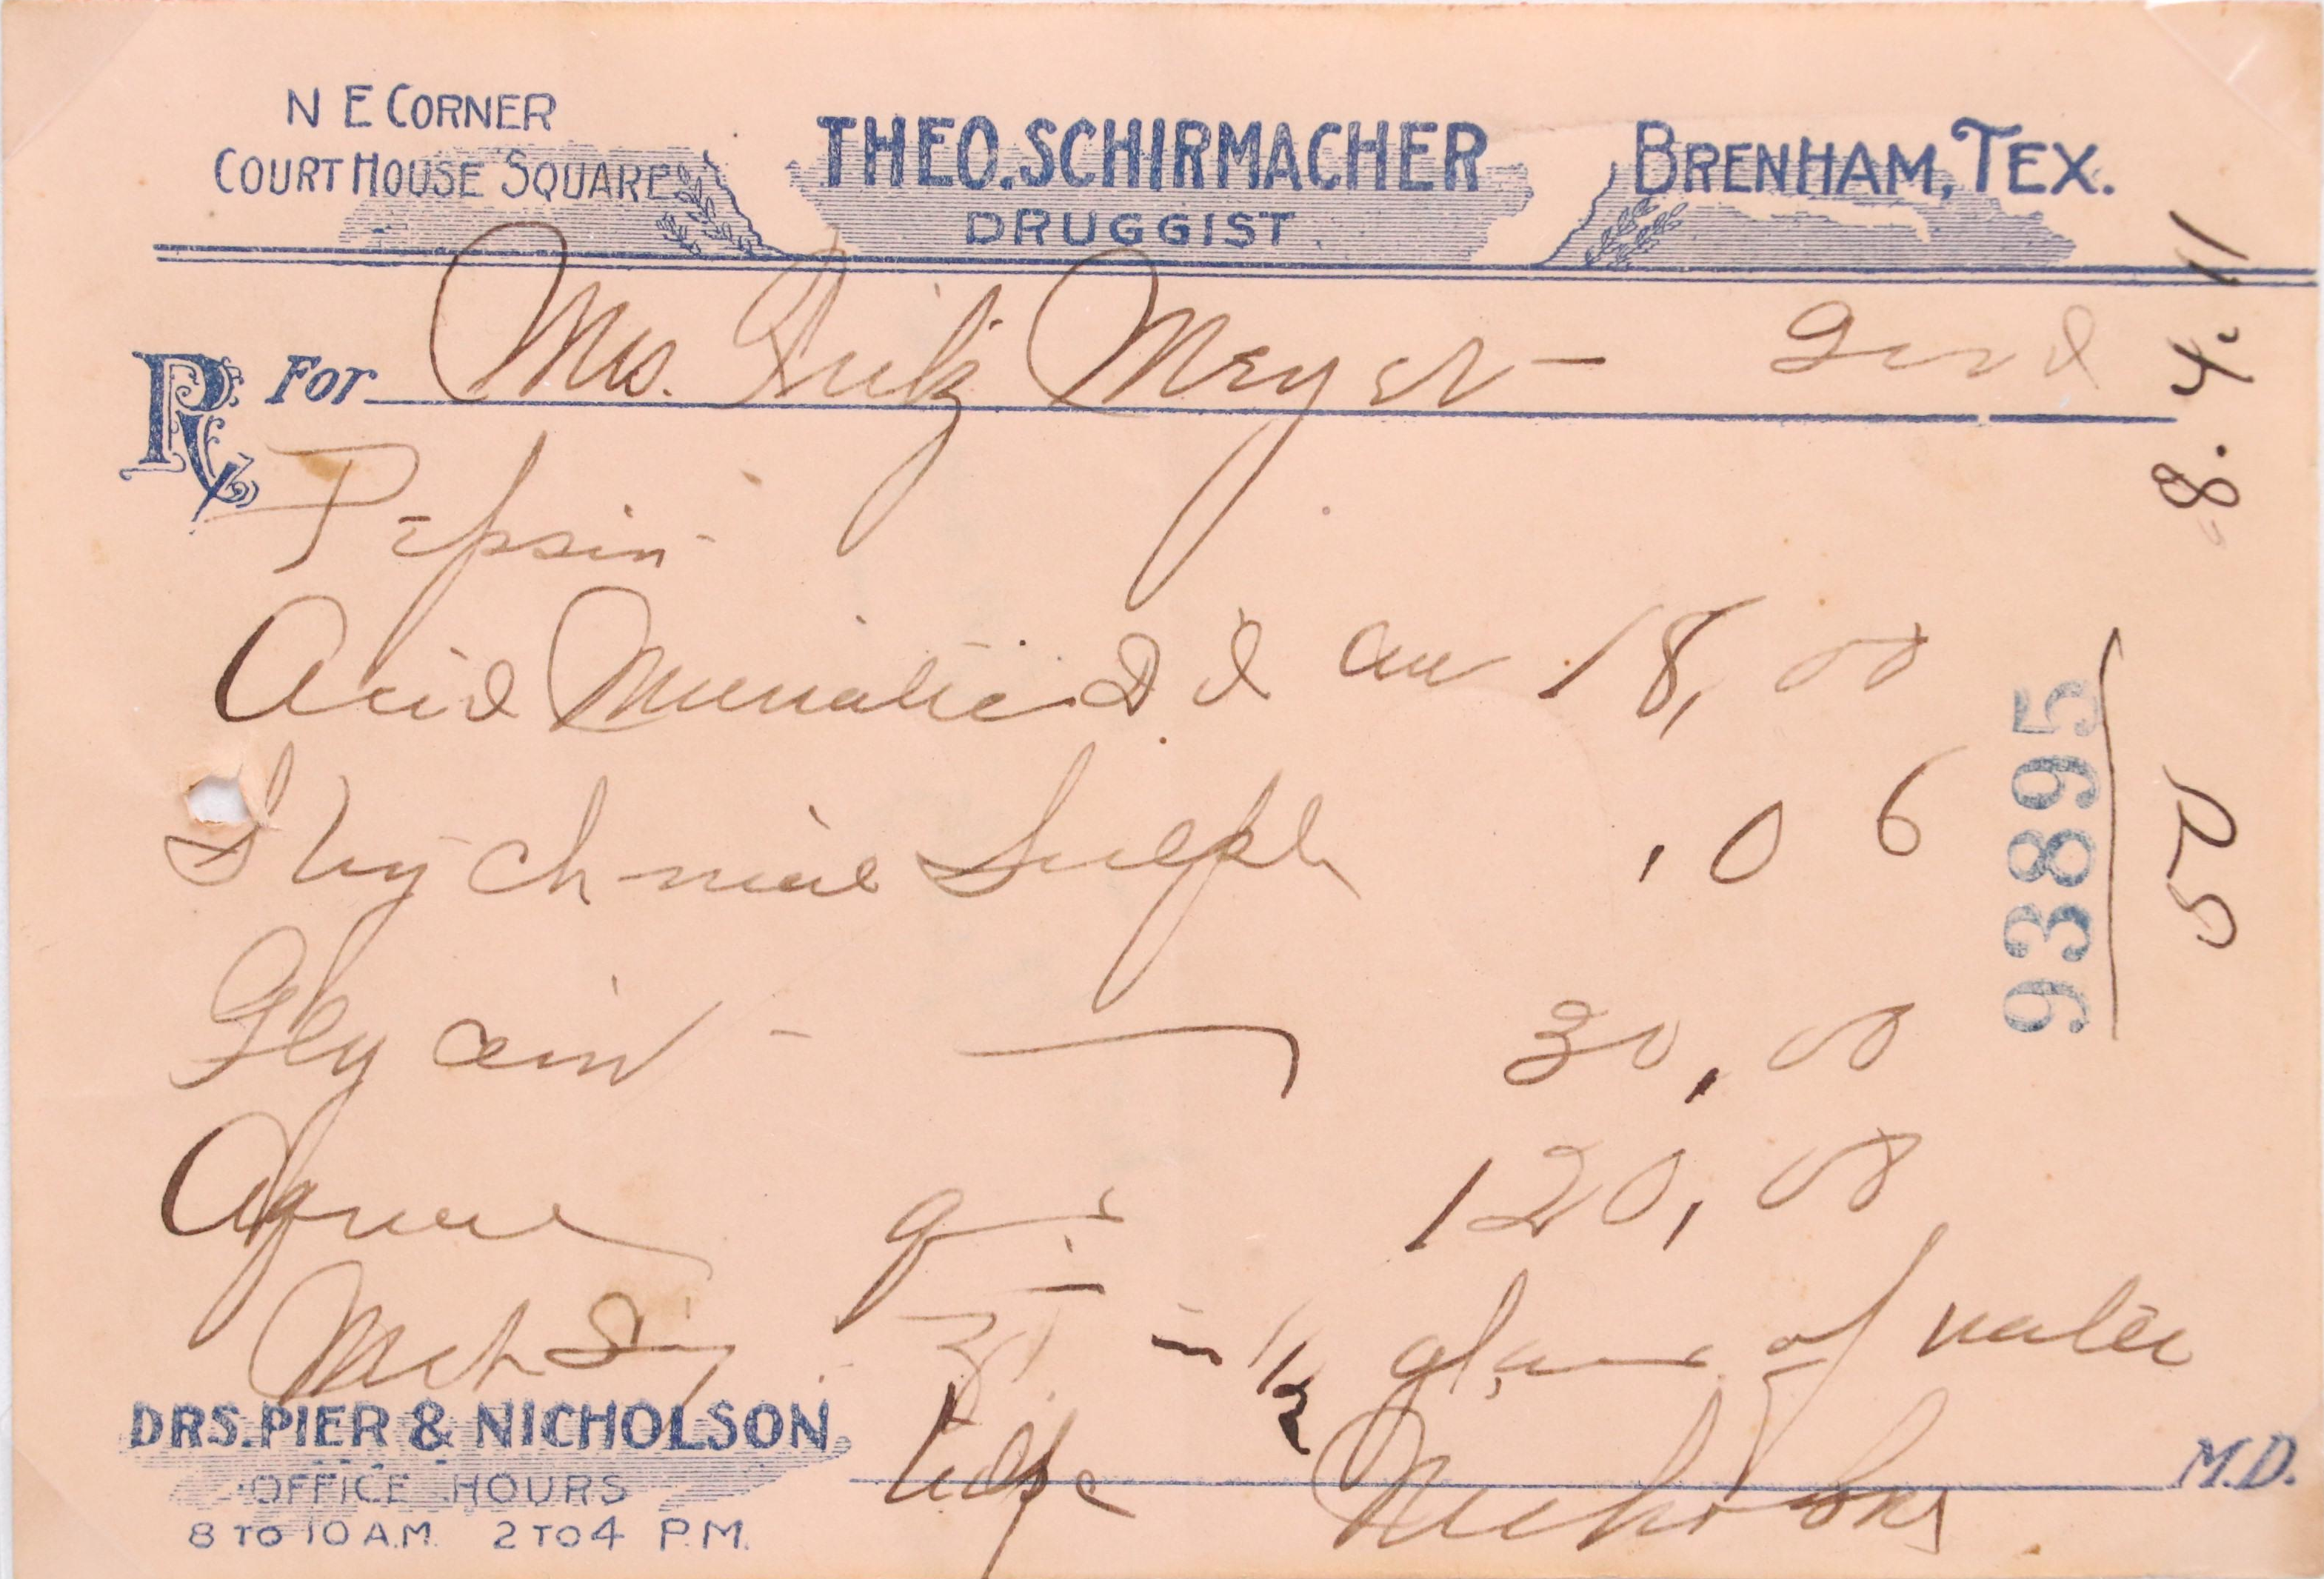 N E CORNER
COURT HOUSE SQUARE
THEO. SCHIRMACHER
DRUGGIST
BRENHAM, TEX.
Rx For Mrs. Fritz Meyer -
8.4.11
Pepsin -
Acid Muriatic Dil aa 18,00
Strychniae Sulph .06
Glycerin - 30,00
Aquae qs 120,00
93895
50
M ft Sig ʒi in 1/2 glass of water
DRS. PIER & NICHOLSON
OFFICE HOURS
8 TO 10 A.M. 2 TO 4 P.M.
Nicholson M.D.